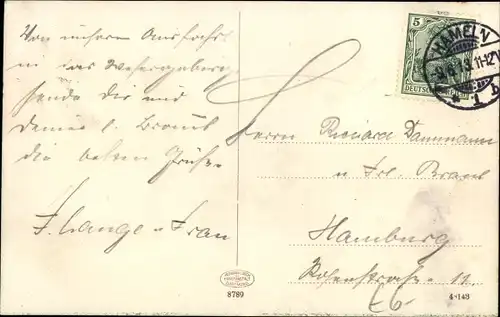 Von unserer Ausfahrt
in das Wesergebirge
sende dir und
deiner l. Braut
die besten Grüße
F. Lange u. Frau
Herrn Richard Dammann
u Frl. Braut
Hamburg
Rosenstrasse 11.
5
DEUTSCHES
HAMELN
11-12V
8789
4-143